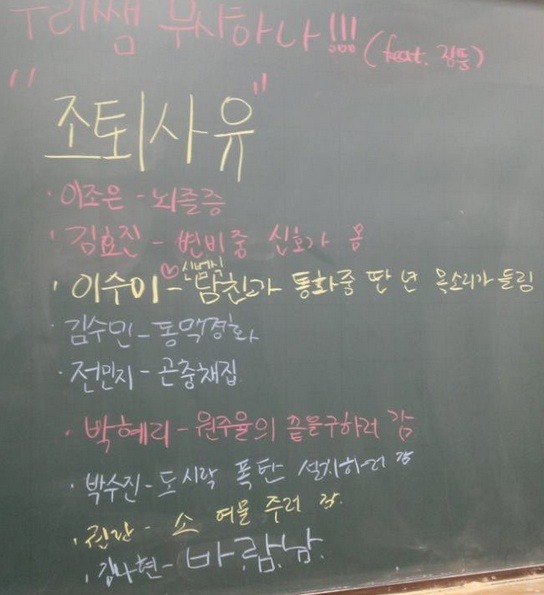 우리쌤 무샤하나!!! (feat. 짱뚱)
"조퇴사유"
· 이조은 - 뇌졸증
· 김효진 - 변비중 신호가 옴
· 이수미 - ♡신버신 남친과 통화중 딴 년 목소리가 들림
· 김수민 - 동맥경화
· 전민지 - 곤충채집
· 박혜리 - 원주율의 끝을구하러 감
· 박수진 - 도시락 폭탄 설치하러 감
· - 소 여물 주러 감.
· 김나현 - 바.람.남.